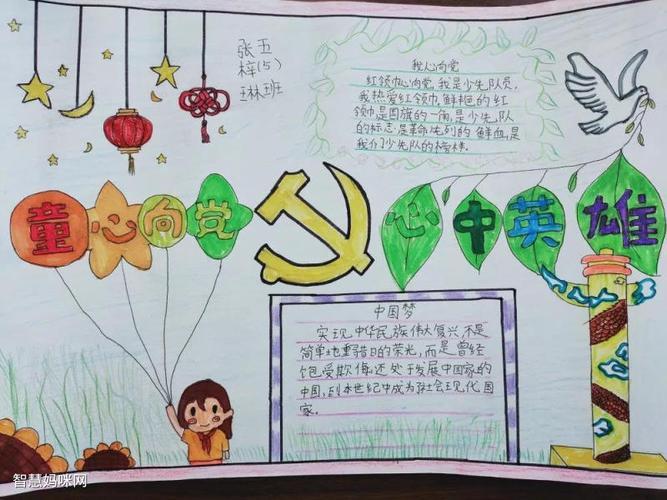 张 五
梓(5)
琳 班
我心向党
红领巾心向党,我是少先队员,
我热爱红领巾,鲜艳的红
领巾是国旗的一角,是少先队
的标志是革命先烈的鲜血,是
我们少先队的榜样.
童心向党
心中英雄
中国梦
实现中华民族伟大复兴,不是
简单地重踏昔日的荣光,而是曾经
饱受欺侮,还处于发展中国家的
中国,到本世纪中成为社会现化国
家.
智慧妈咪网